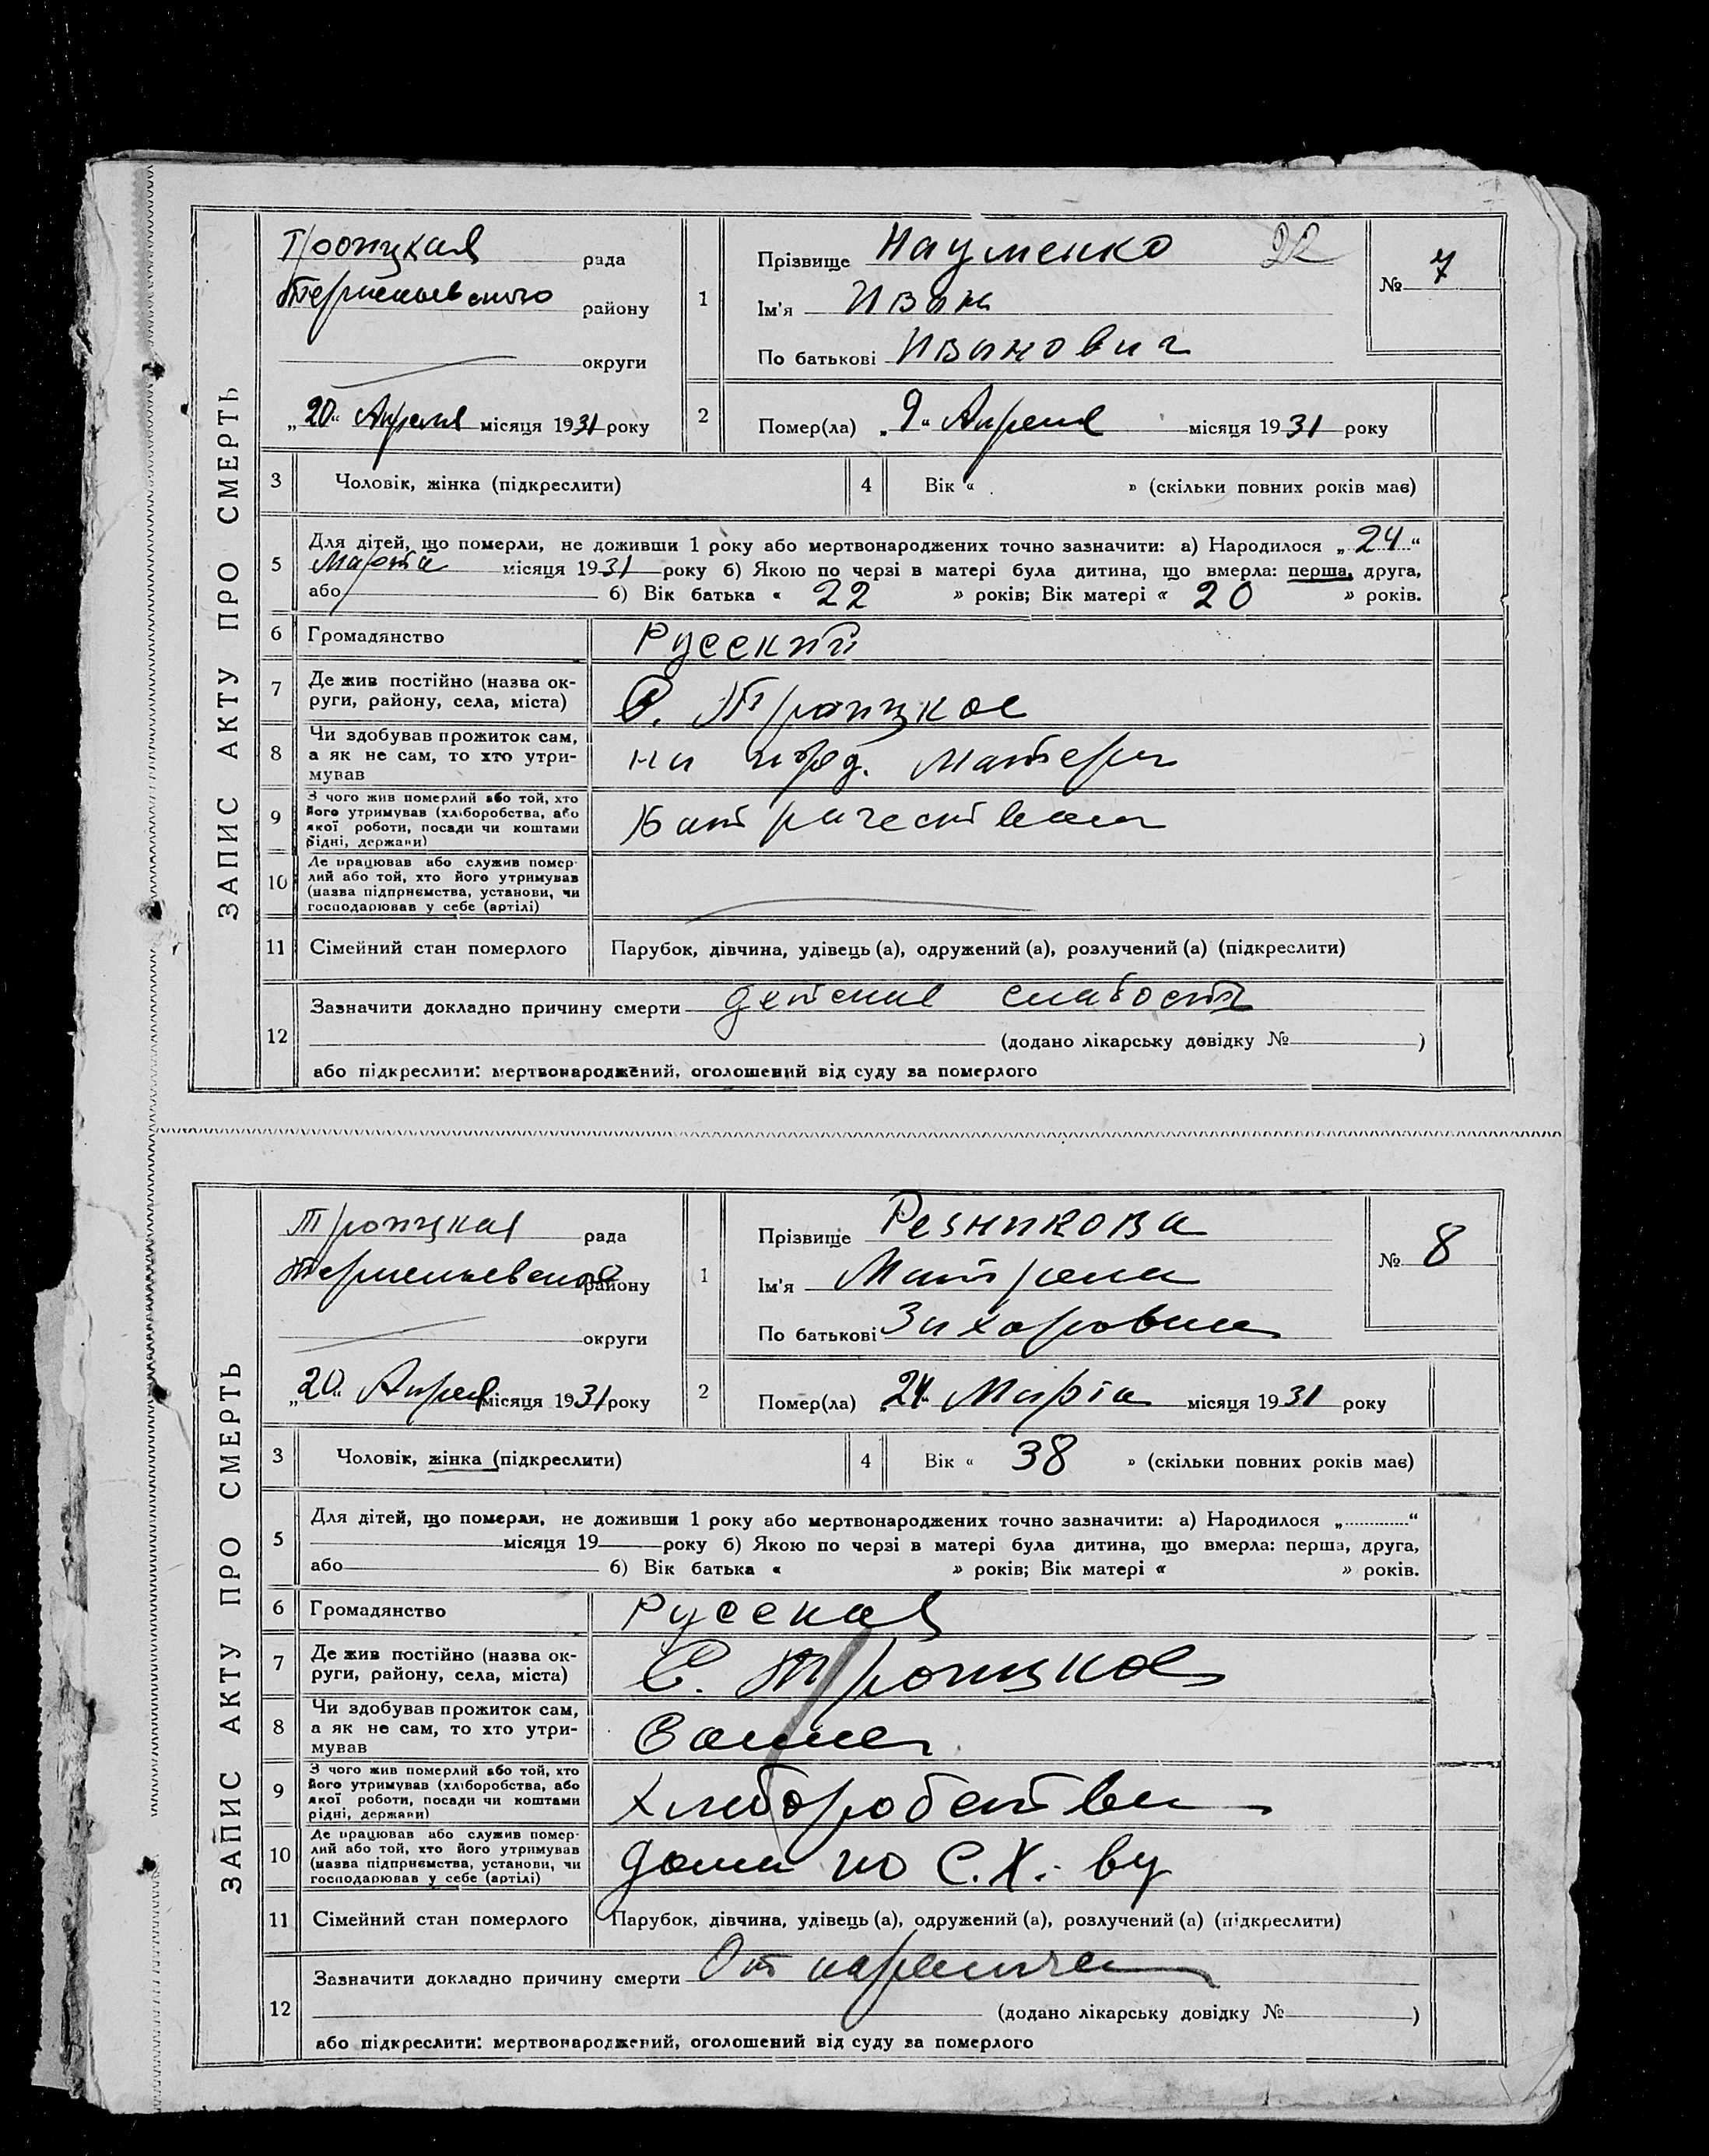 ЗАПИС АКТУ ПРО СМЕРТЬ
Троицкая рада
района
округи
„20“ Апреля місяця 1931 року
1
Прізвище Науменко 22
Ім'я Иван
По батькові Иванович
№ 7
2
Помер(ла) „9“ Апреля місяця 1931 року
3
Чоловік, жінка (підкреслити)
4
Вік « » (скільки повних років має)
5
Для дітей, що померли, не доживши 1 року або мертвонароджених точно зазначити: а) Народилося „24“
Марта місяця 1931 року б) Якою по черзі в матері була дитина, що вмерла: перша, друга,
або б) Вік батька « 22 » років; Вік матері « 20 » років.
6
Громадянство Русский
7
Де жив постійно (назва ок-
руги, району, села, міста)
С. Троицкое
8
Чи здобував прожиток сам,
а як не сам, то хто утри-
мував
Матери
9
З чого жив померлий або той, хто
його утримував (хліборобства, або
якої роботи, посади чи коштами
рідні, держави)
10
Де працював або служив помер-
лий або той, хто його утримував
(назва підприємства, установи, чи
господарював у себе (артілі)
11
Сімейний стан померлого Парубок, дівчина, удівець (а), одружений (а), розлучений (а) (підкреслити)
12
Зазначити докладно причину смерти детская слабость
(додано лікарську довідку № )
або підкреслити: мертвонароджений, оголошений від суду за померлого
ЗАПИС АКТУ ПРО СМЕРТЬ
Троицкая рада
району
округи
„20“ Апреля місяця 1931 року
1
Прізвище Резникова
Ім'я Матрена
По батькові Захаровна
№ 8
2
Помер(ла) „24“ Марта місяця 1931 року
3
Чоловік, жінка (підкреслити)
4
Вік « 38 » (скільки повних років має)
5
Для дітей, що померли, не доживши 1 року або мертвонароджених точно зазначити: а) Народилося „ “
місяця 19 року б) Якою по черзі в матері була дитина, що вмерла: перша, друга,
або б) Вік батька « » років; Вік матері « » років.
6
Громадянство Русская
7
Де жив постійно (назва ок-
руги, району, села, міста)
С. Троицкое
8
Чи здобував прожиток сам,
а як не сам, то хто утри-
мував
Сама
9
З чого жив померлий або той, хто
його утримував (хліборобства, або
якої роботи, посади чи коштами
рідні, держави)
Хлеборобства
10
Де працював або служив помер-
лий або той, хто його утримував
(назва підприємства, установи, чи
господарював у себе (артілі)
дома по С.Х. ву
11
Сімейний стан померлого Парубок, дівчина, удівець (а), одружений (а), розлучений (а) (підкреслити)
12
Зазначити докладно причину смерти От паралича
(додано лікарську довідку № )
або підкреслити: мертвонароджений, оголошений від суду за померлого